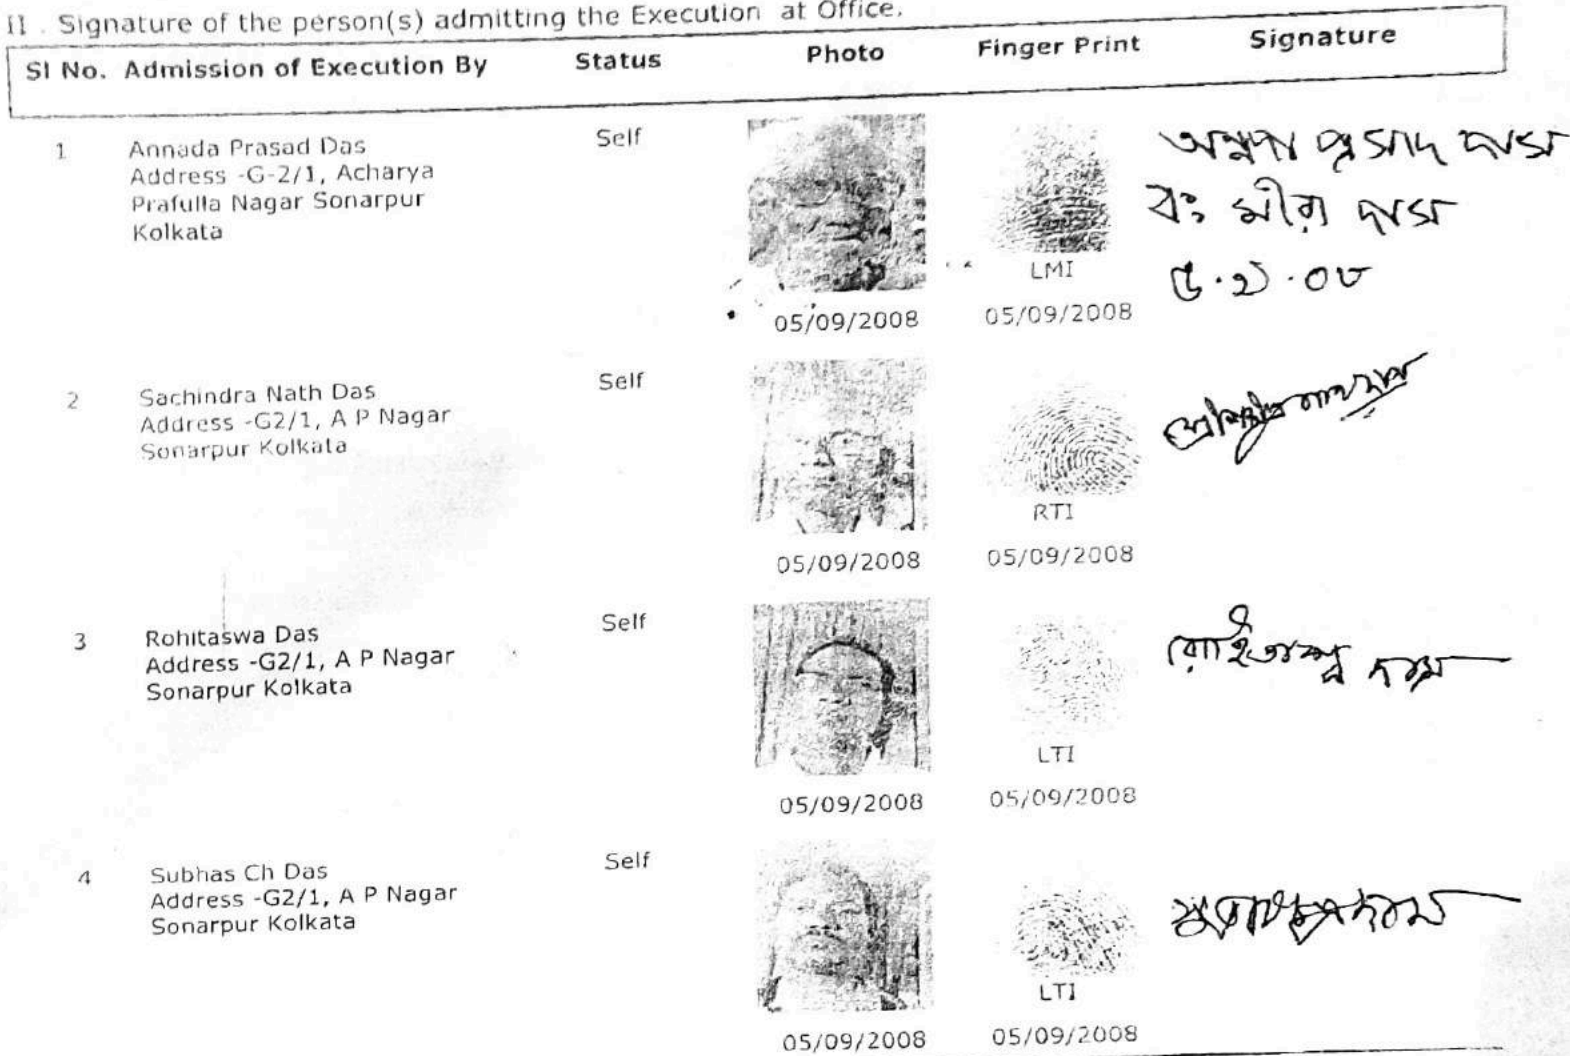 II . Signature of the person(s) admitting the Execution at Office.
Sl No. Admission of Execution By Status Photo Finger Print Signature
1 Annada Prasad Das Self
Address -G-2/1, Acharya
Prafulla Nagar Sonarpur
Kolkata
LMI
05/09/2008 05/09/2008
অন্নদা প্রসাদ দাস
বঃ মীরা দাস
৫.৯.০৮
2 Sachindra Nath Das Self
Address -G2/1, A P Nagar
Sonarpur Kolkata
RTI
05/09/2008 05/09/2008
3 Rohitaswa Das Self
Address -G2/1, A P Nagar
Sonarpur Kolkata
LTI
05/09/2008 05/09/2008
রোহিতাশ্ব দাস
4 Subhas Ch Das Self
Address -G2/1, A P Nagar
Sonarpur Kolkata
LTI
05/09/2008 05/09/2008